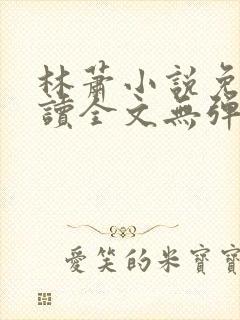 林蕭小說免
讀全文無彈
愛笑的米寶寶